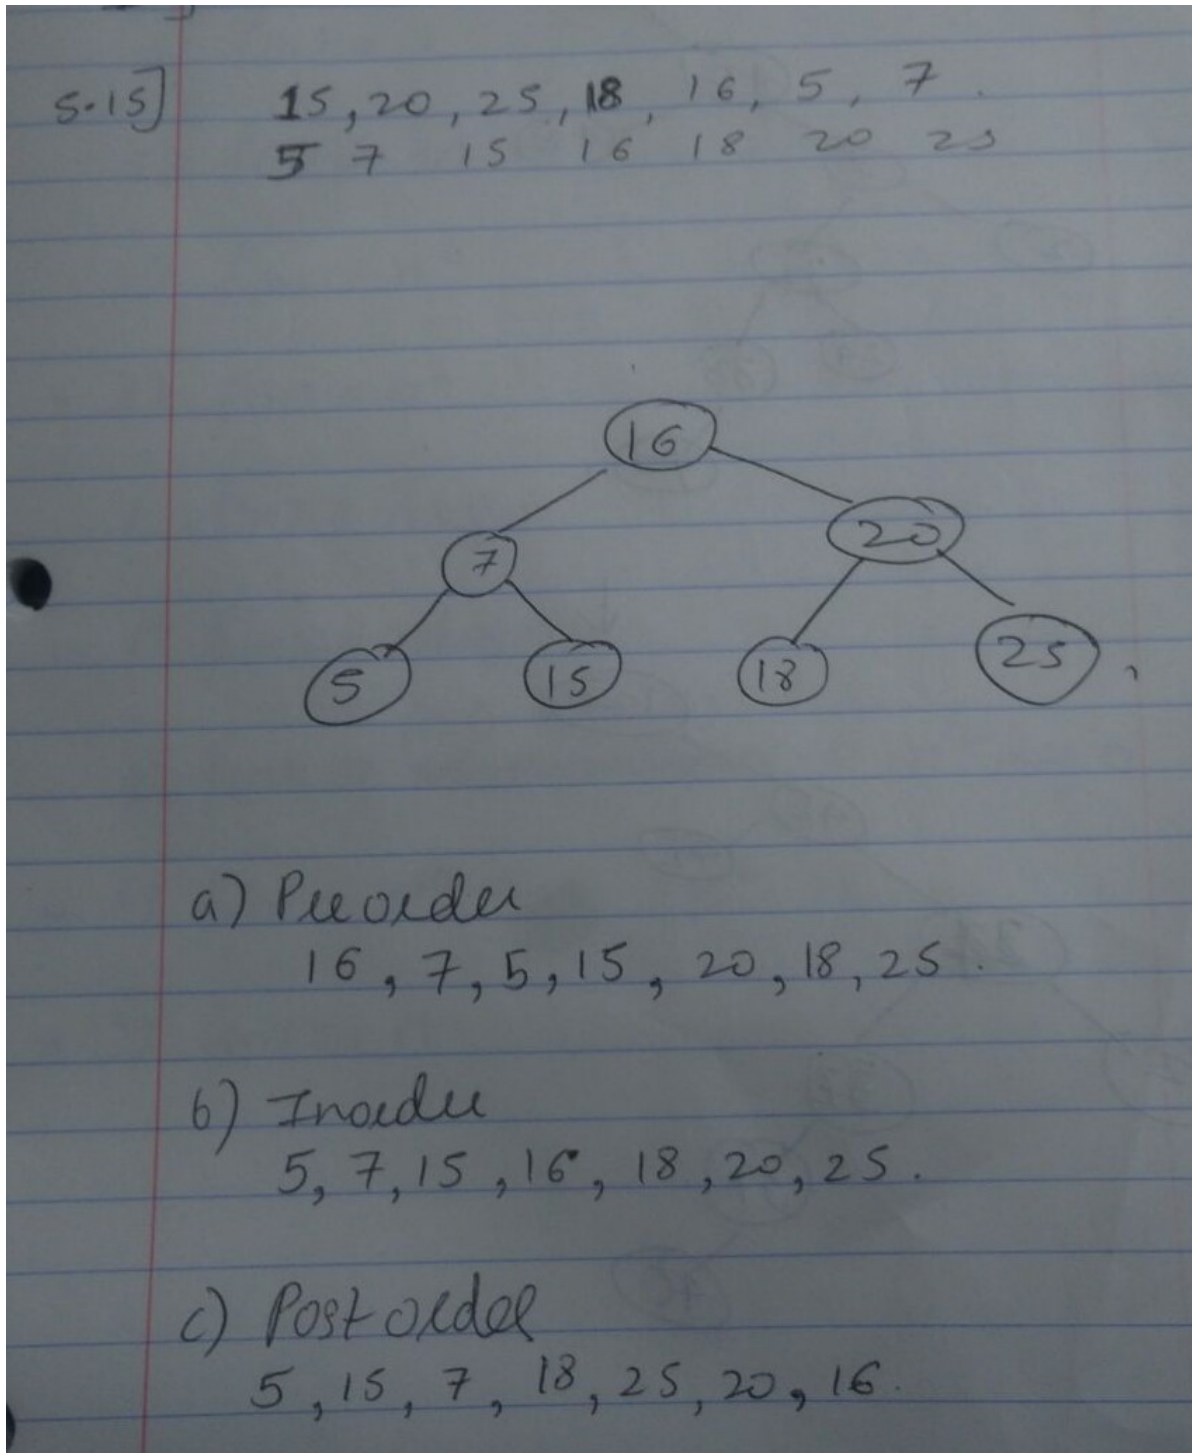 5.15]
15, 20, 25, 18, 16, 5, 7.
5 7 15 16 18 20 25
16
7
20
5
15
18
25,
a) Preorder
16, 7, 5, 15, 20, 18, 25.
b) Inorder
5, 7, 15, 16, 18, 20, 25.
c) Postorder
5, 15, 7, 18, 25, 20, 16.